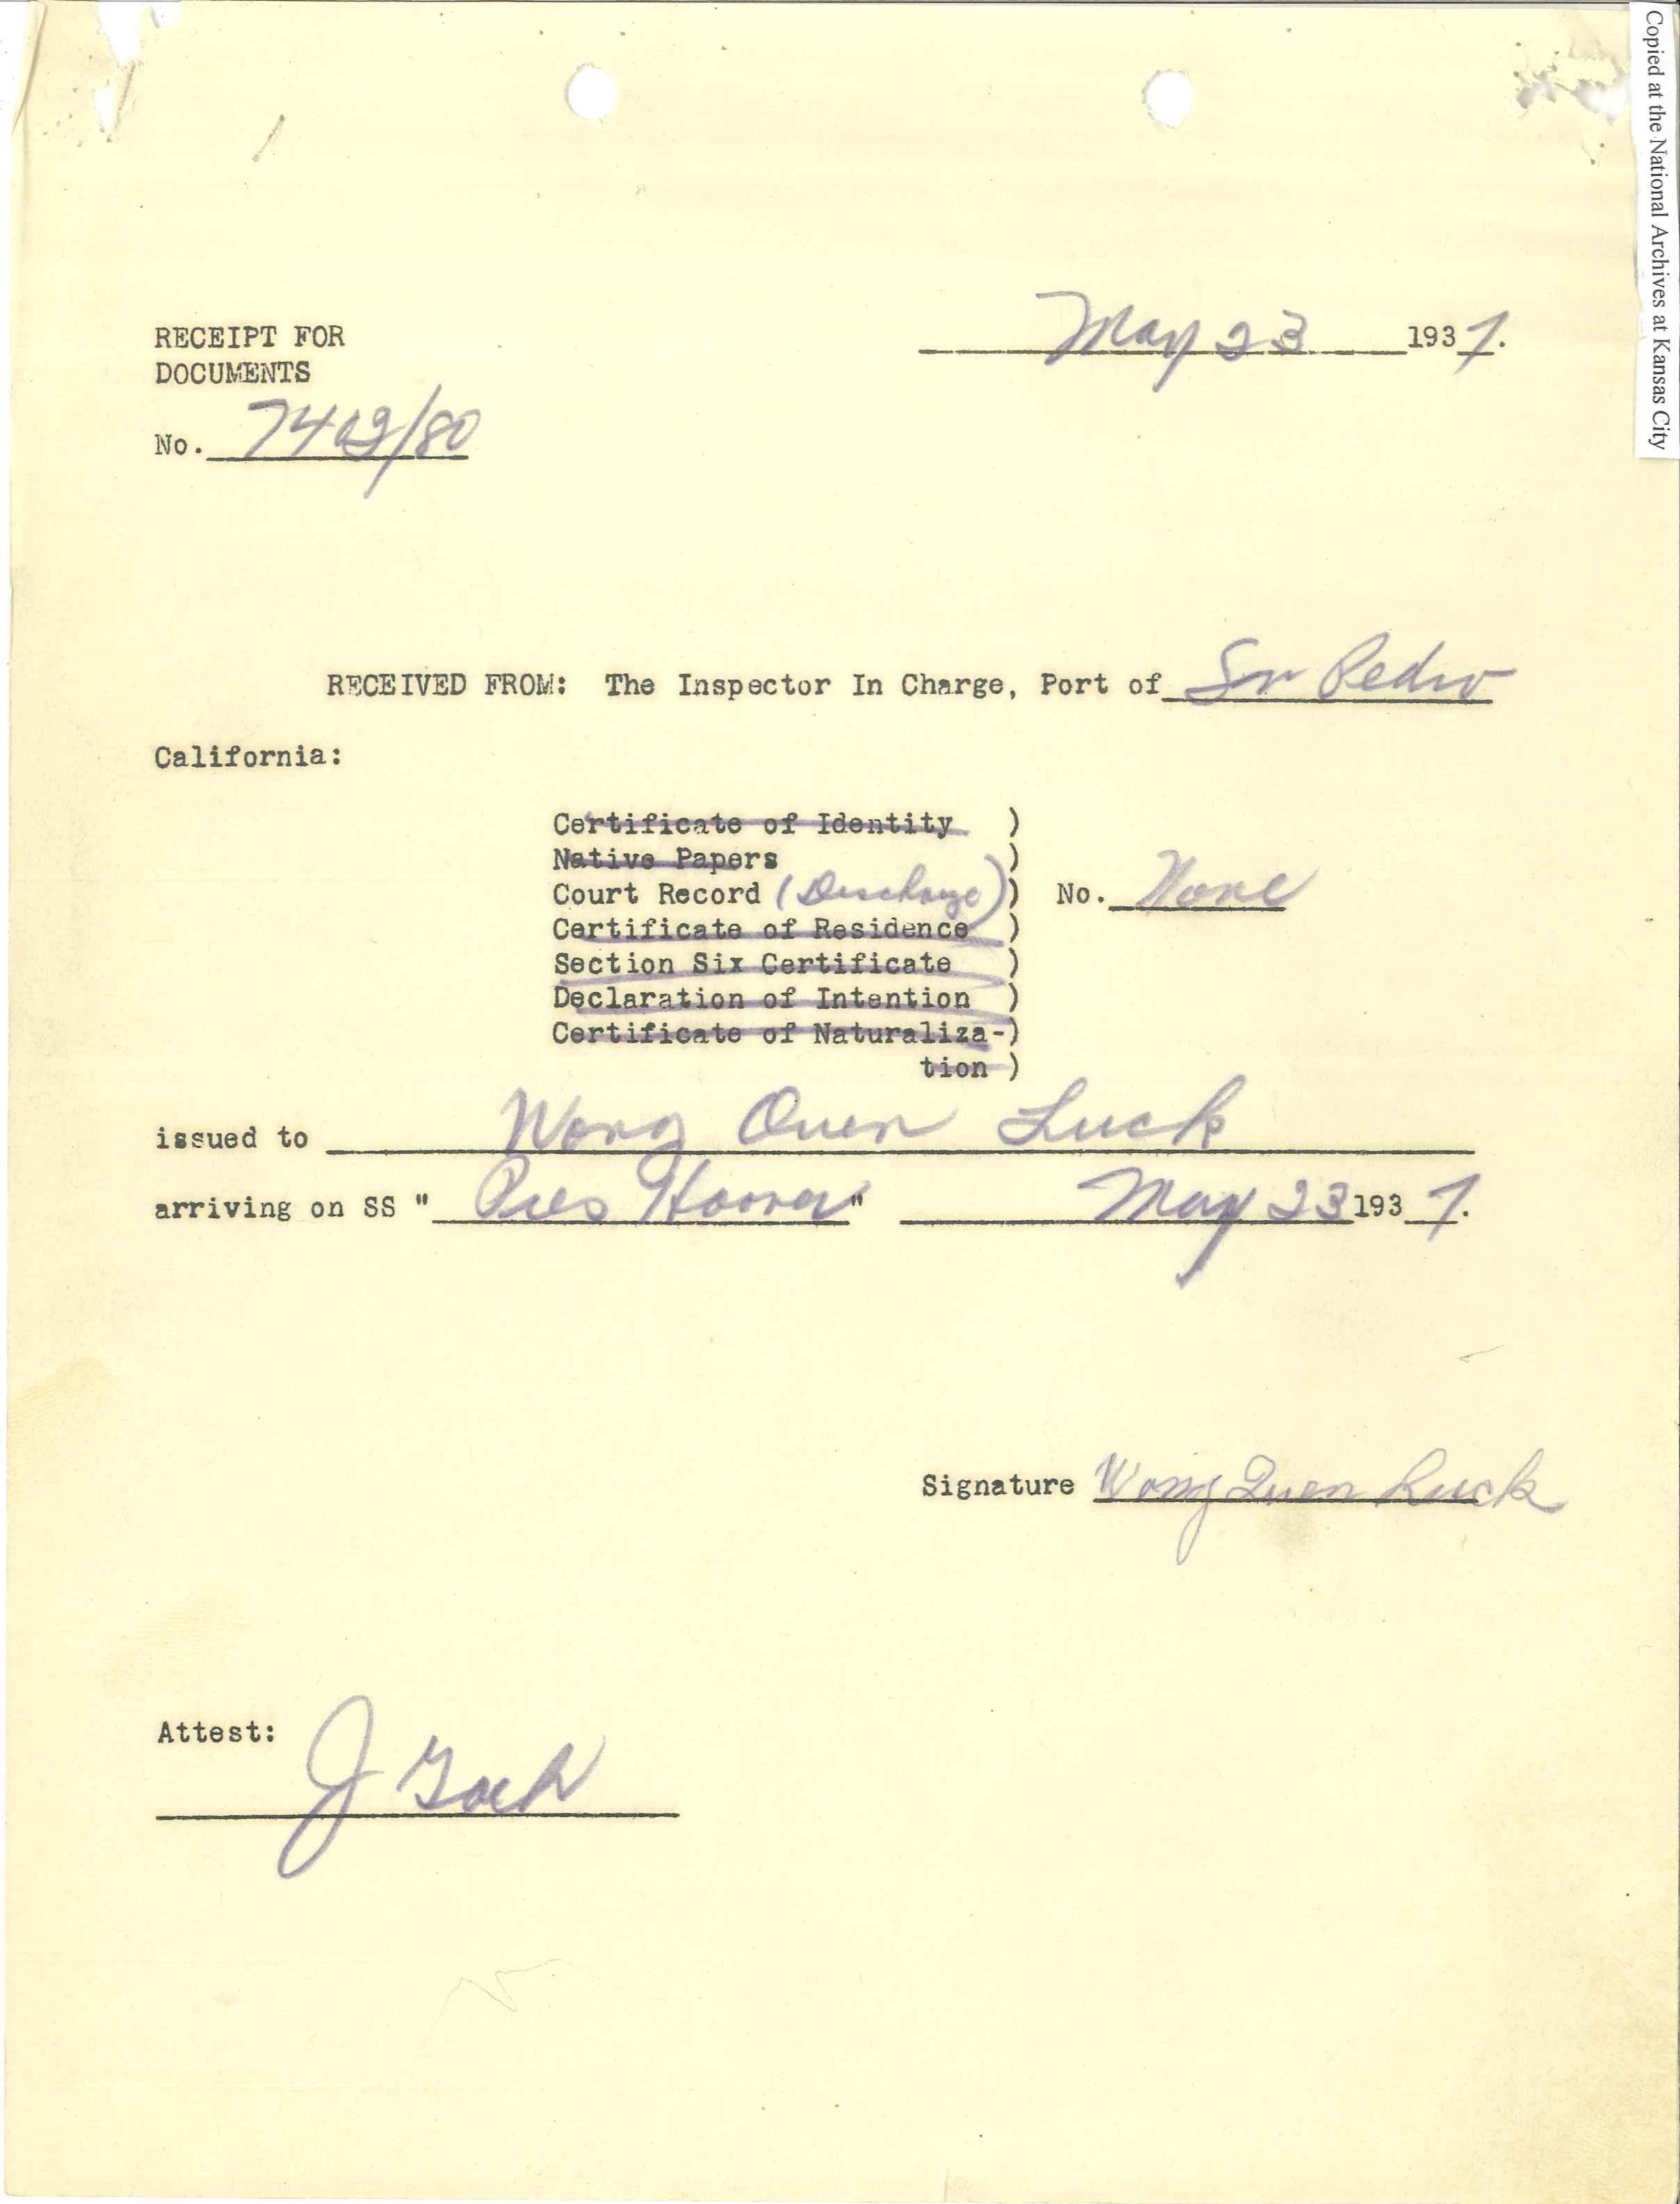 Copied at the National Archives at Kansas City
RECEIPT FOR
DOCUMENTS
May 23 1937.
No. 7412/80
RECEIVED FROM: The Inspector In Charge, Port of San Pedro
California:
Certificate of Identity )
Native Papers )
Court Record (Discharge) ) No. None
Certificate of Residence )
Section Six Certificate )
Declaration of Intention )
Certificate of Naturaliza-)
tion )
issued to Wong Quen Luck
arriving on SS "Pres Hoover" May 23 1937.
Signature Wong Quen Luck
Attest:
J